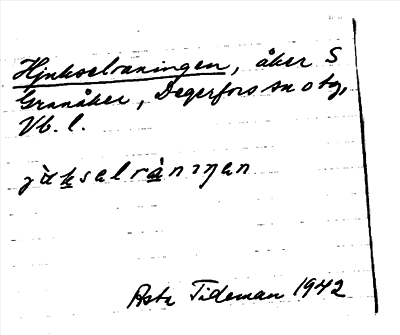 Hjukselråningen, åker S
Granåker, Degerfors sn o tg,
Vb. l.
jʉ̀kselrånɪŋen
Asta Tideman 1942